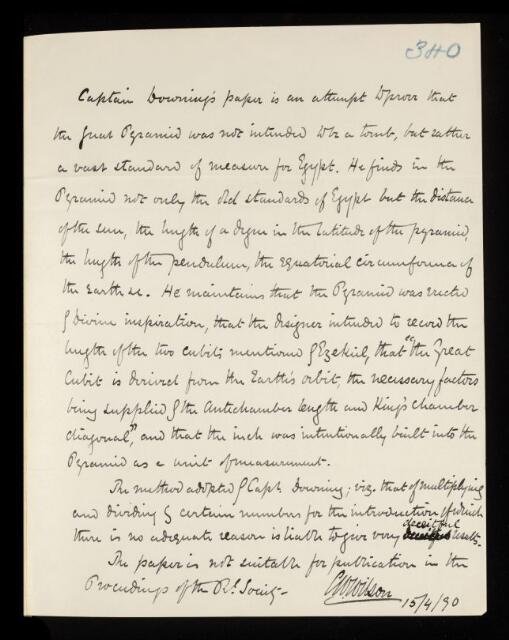 340
Captain Downing's paper is an attempt to prove that
the Great Pyramid was not intended to be a tomb, but rather
a vast standard of measure for Egypt. He finds in the
Pyramid not only the old standards of Egypt but the distance
of the sun, the length of a degree in the latitude of the pyramid,
the length of the pendulum, the equatorial circumference of
the Earth &c. He maintains that the Pyramid was erected
by divine inspiration, that the designer intended to record the
length of the two cubits mentioned by Ezekiel, that "the Great
Cubit is derived from the Earth's orbit, the necessary factors
being supplied by the Antichamber length and King's chamber
diagonal", and that the inch was intentionally built into the
Pyramid as a unit of measurement.
The method adopted by Capt. Downing; viz. that of multiplying
and dividing by certain numbers for the introduction of which
there is no adequate reason is liable to give very deceitful results.
The paper is not suitable for publication in the
Proceedings of the Rl. Society—
CWWilson
15/4/90